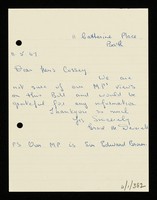 Catherine Place
Bath
Dear Mrs Cossey
We are
not sure of our M.P's views
on this Bill and would be
grateful for any information
Thanking you so much
Yrs sincerely
PS Our MP is Sir Edward Brown